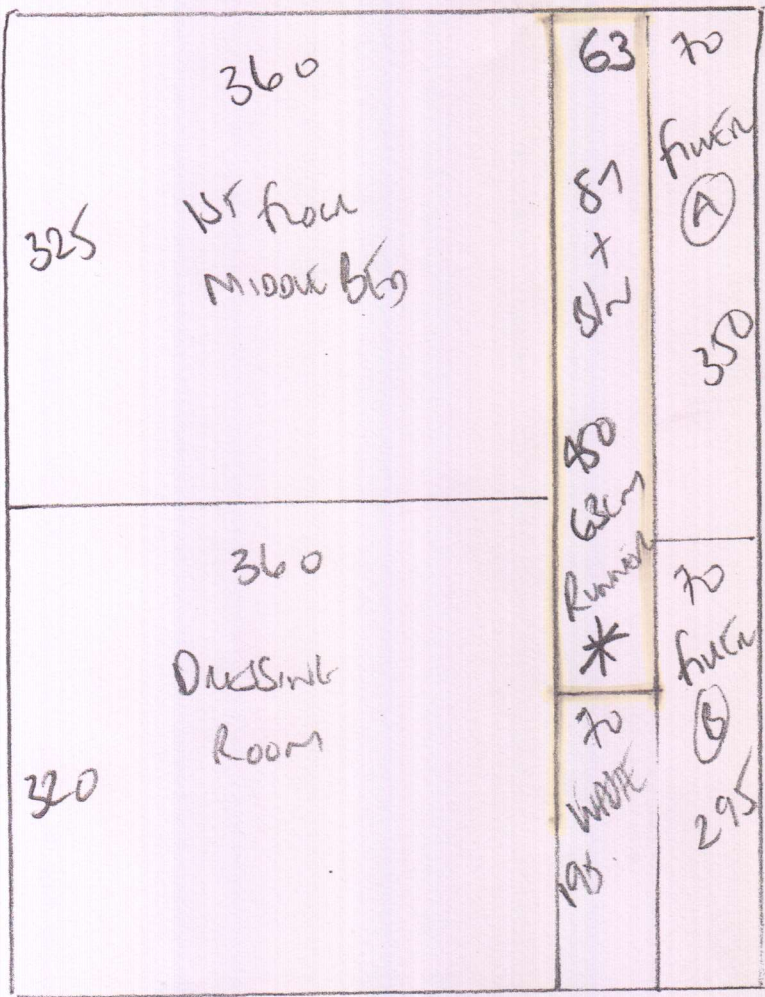 360
325
1ST FLOOR
MIDDLE BED
360
DRESSING
ROOM
320
63
+
450
63cm
RUNNER
*
70
WASTE
195
70
FILLER
A
350
70
FILLER
B
295